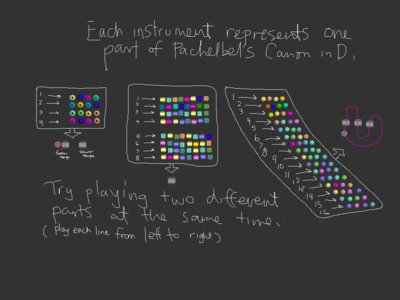 Each instrument represents one
part of Pachelbel's Canon in D.
1
2
3
4
1
2
3
4
5
6
7
8
1
2
3
4
5
6
7
8
9
10
11
12
13
14
15
16
Try playing two different
parts at the same time.
(play each line from left to right)